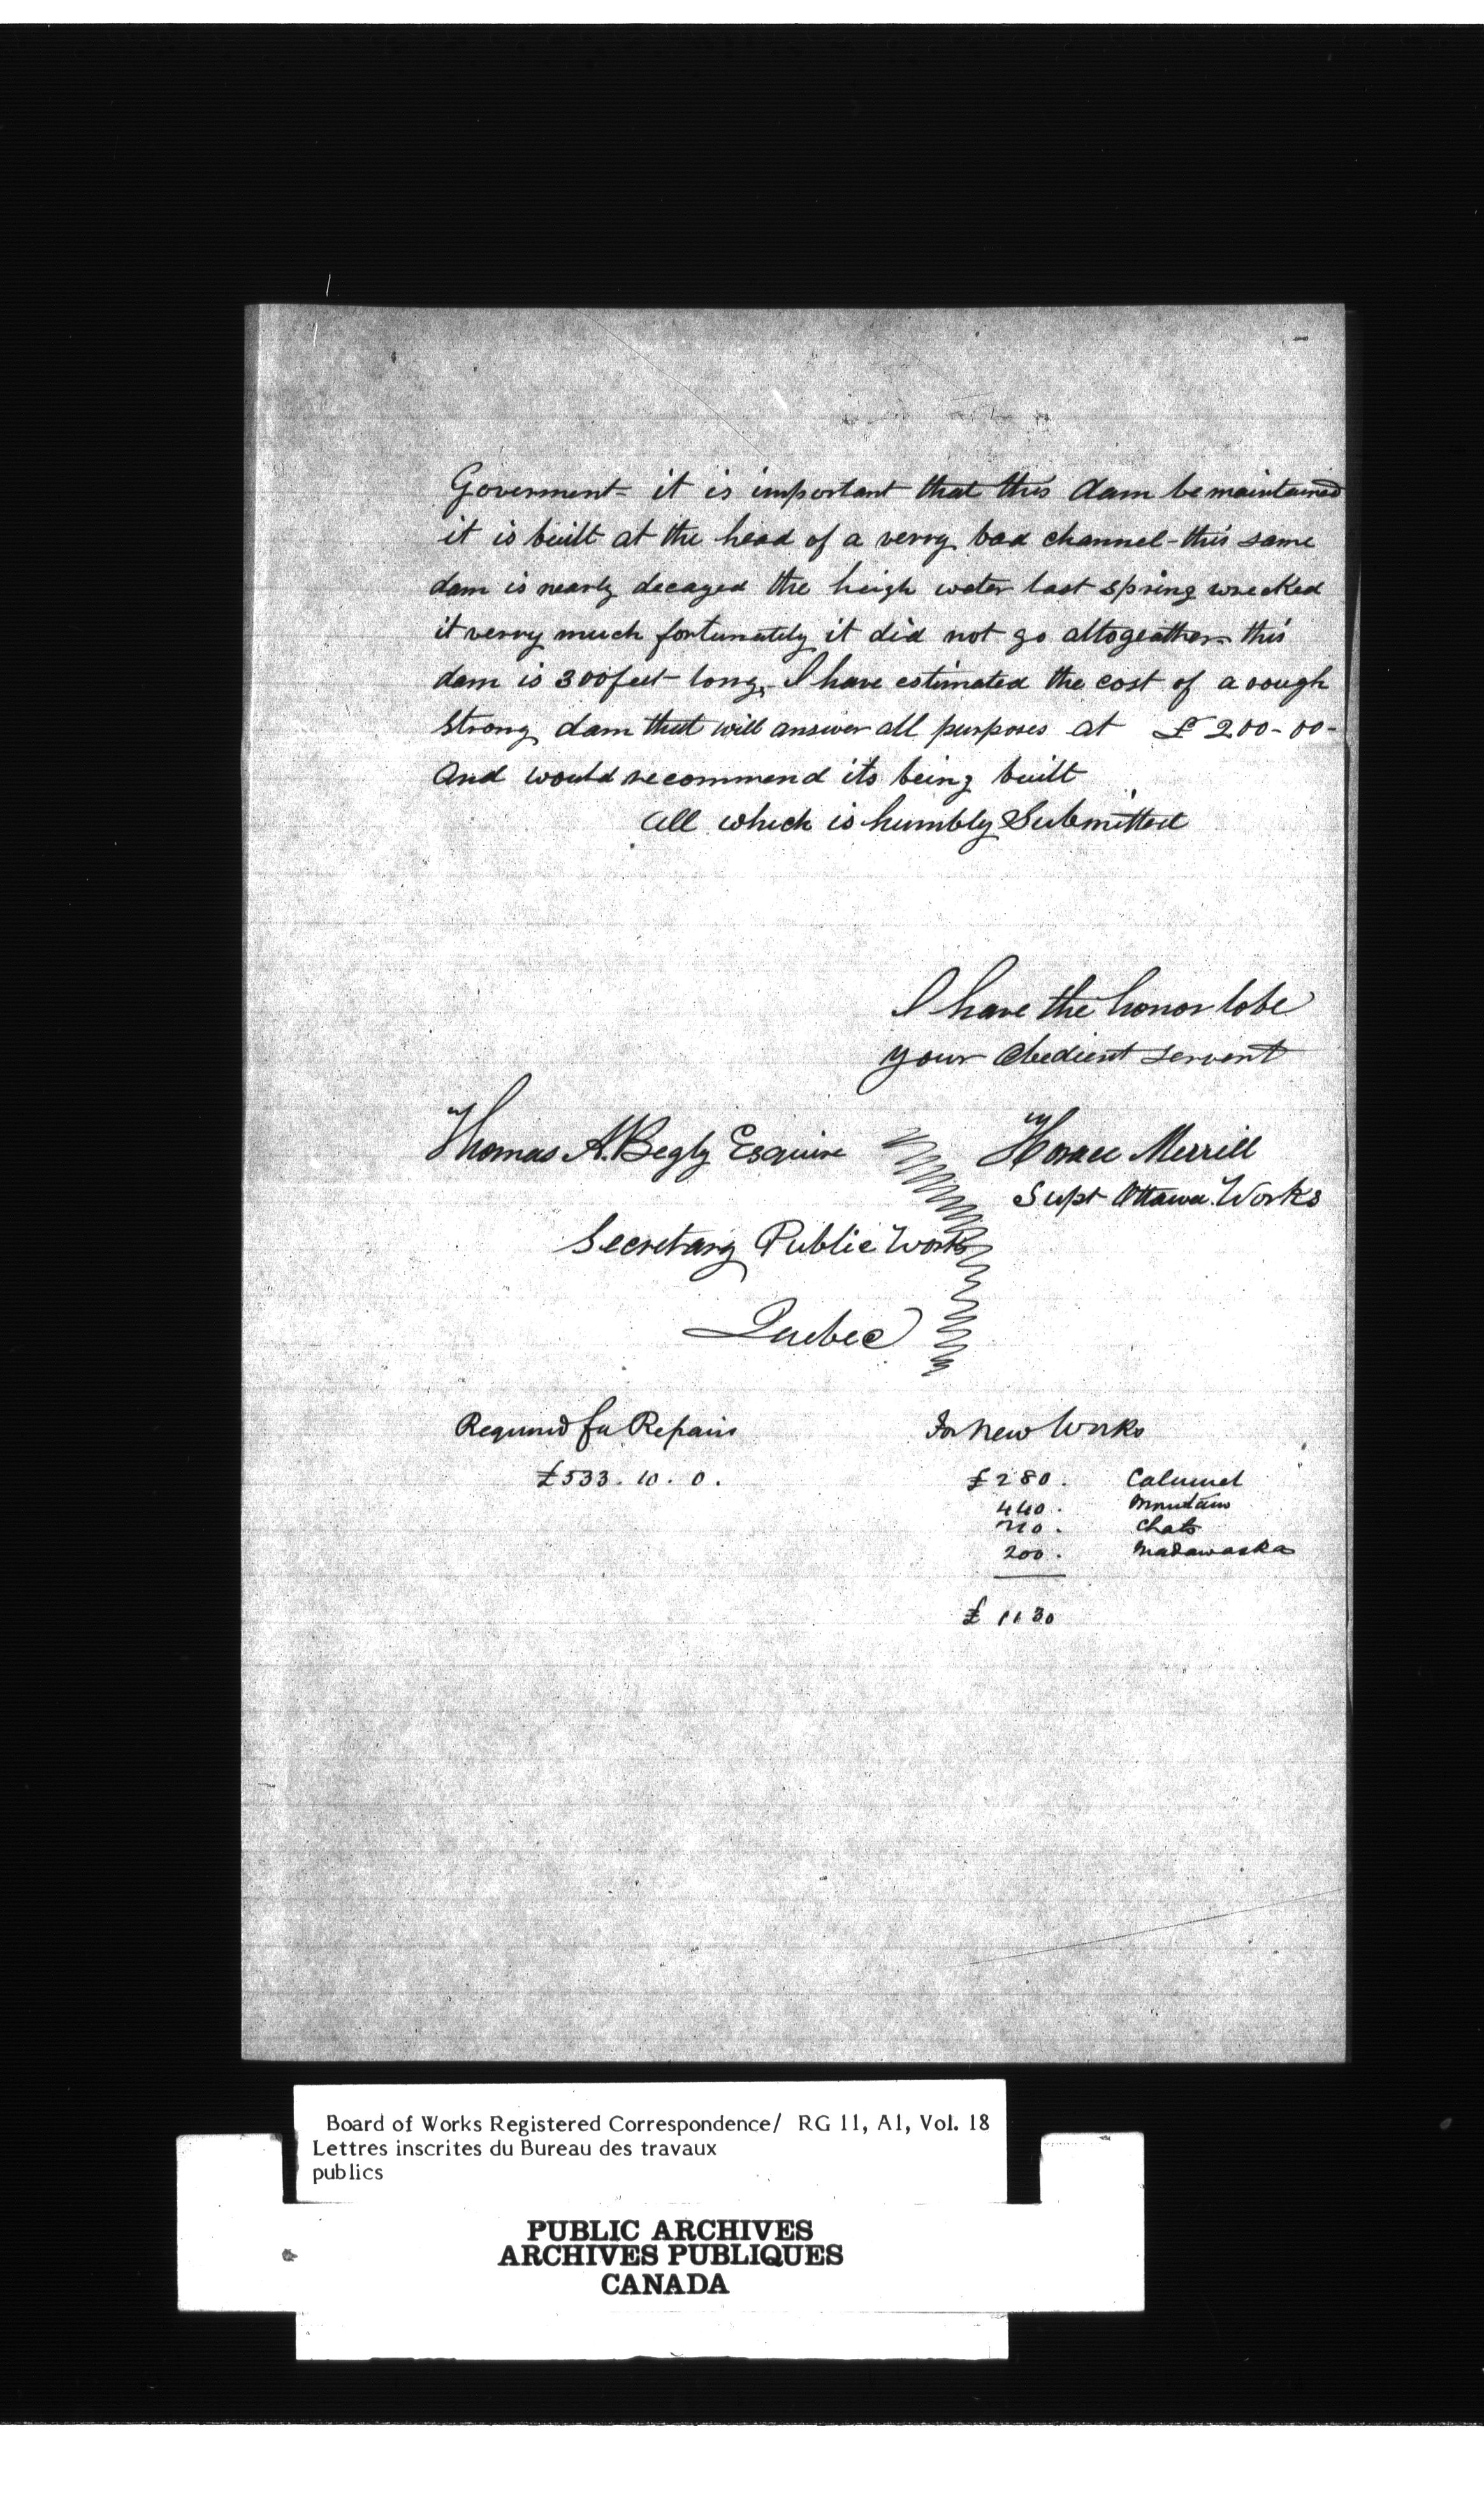 Goverment - it is important that this dam be maintained
it is built at the head of a verry bad channel - this same
dam is nearly decayed the heigh water last spring wrecked
it verry much fortunately it did not go altogeather - this
dam is 300 feet long, I have estimated the cost of a rough
strong dam that will answer all purposes at £200-00-
And would recommend its being built
all which is humbly Submitted
I have the honor to be
your obedient servent
Thomas A. Begly Esquire
Horace Merrill
Supt Ottawa Works
Secretary Public Works
Quebec
Required for Repairs For New Works
£533. 10. 0. £280. Calumet
440. Mountain
210. Chats
200. Madawaska
£ 1130
Board of Works Registered Correspondence/ RG 11, A1, Vol. 18
Lettres inscrites du Bureau des travaux
publics
PUBLIC ARCHIVES
ARCHIVES PUBLIQUES
CANADA